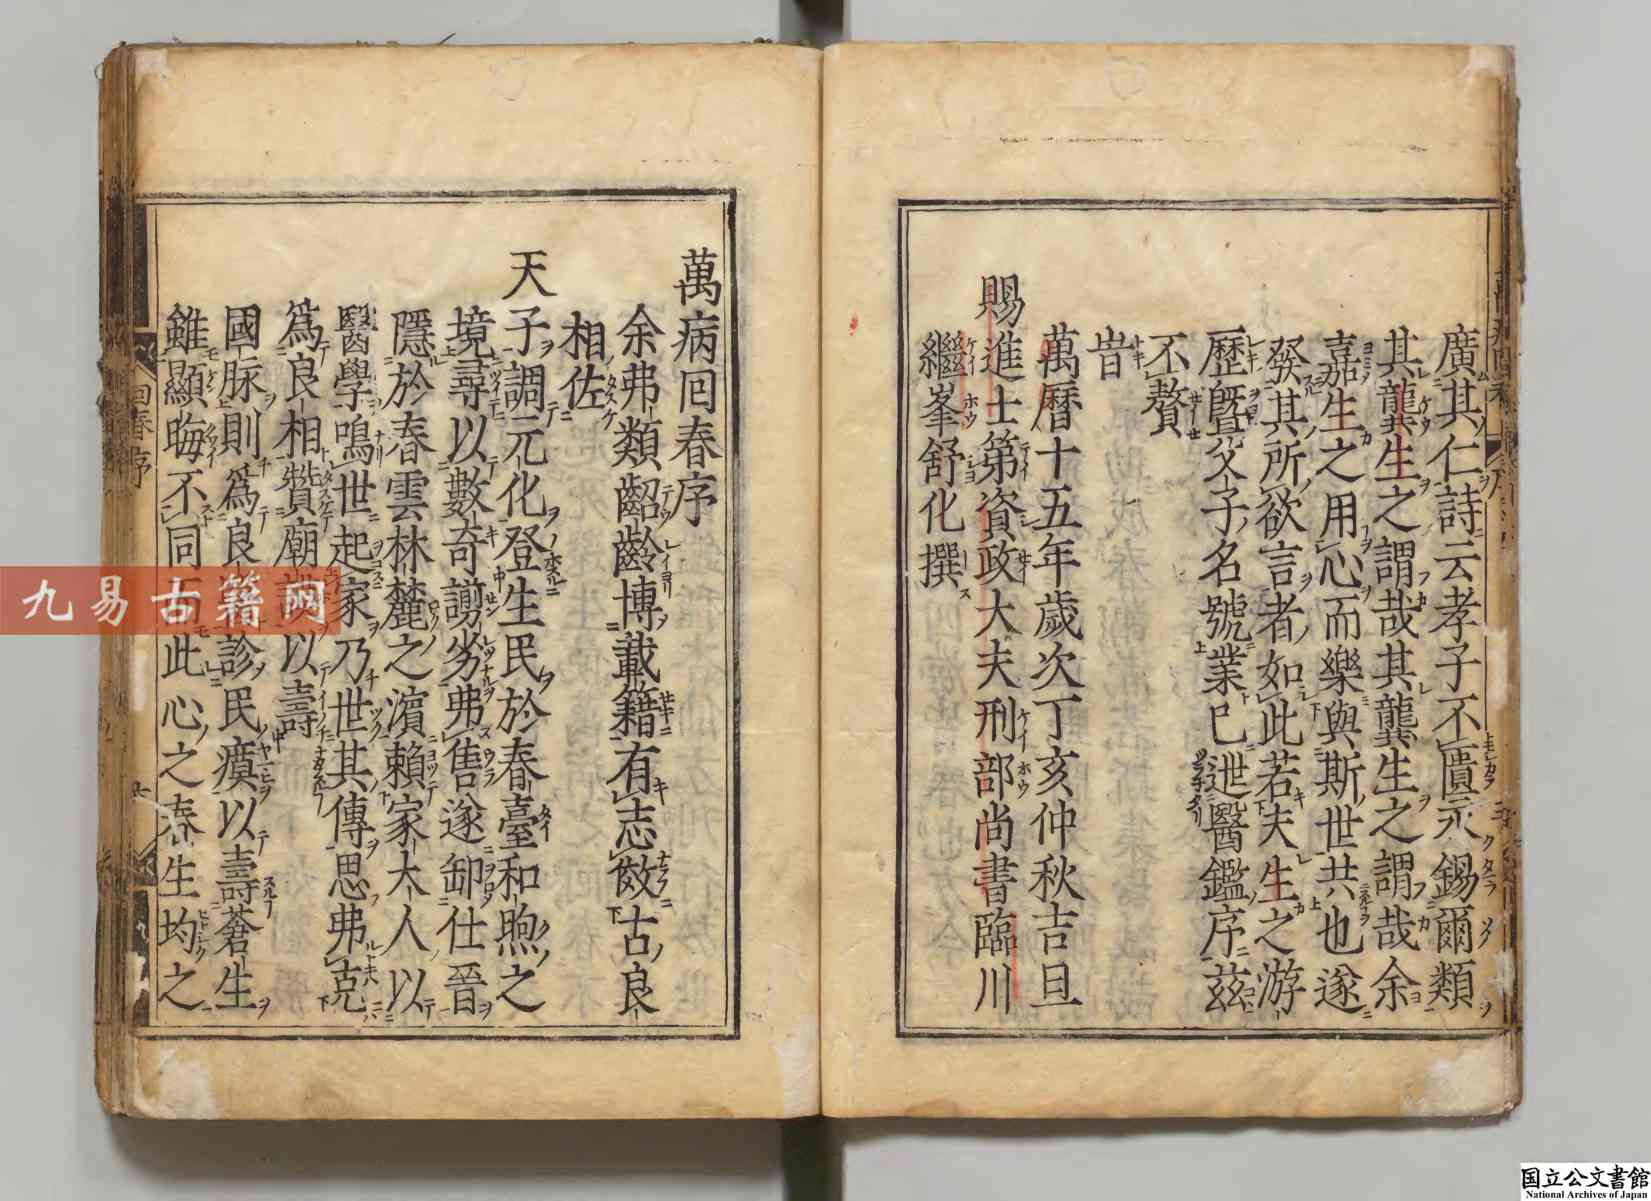 廣其仁詩云孝子不匱永錫爾類
其龔生之謂哉其龔生之謂哉余
嘉生之用心而樂與斯世共也遂
發其所欲言者如此若夫生之游
歷暨父子名號業已迣醫鑑序茲
不贅
旹
萬曆十五年歲次丁亥仲秋吉旦
賜進士第資政大夫刑部尚書臨川
繼峯舒化撰
萬病囘春序
余弗類齠齡博載籍有志傚古良
相佐
天子調元化登生民於春臺和煦之
境尋以數奇謭劣弗售遂卸仕晉
隱於春雲林麓之濵賴家大人以
醫學鳴世起家乃世其傳思弗克
爲良相贊廟謨以壽
國脉則爲良醫診民瘼以壽蒼生
雖顯晦不同而此心之春生均之
回春序
九易古籍网
国立公文書館
National Archives of Japan